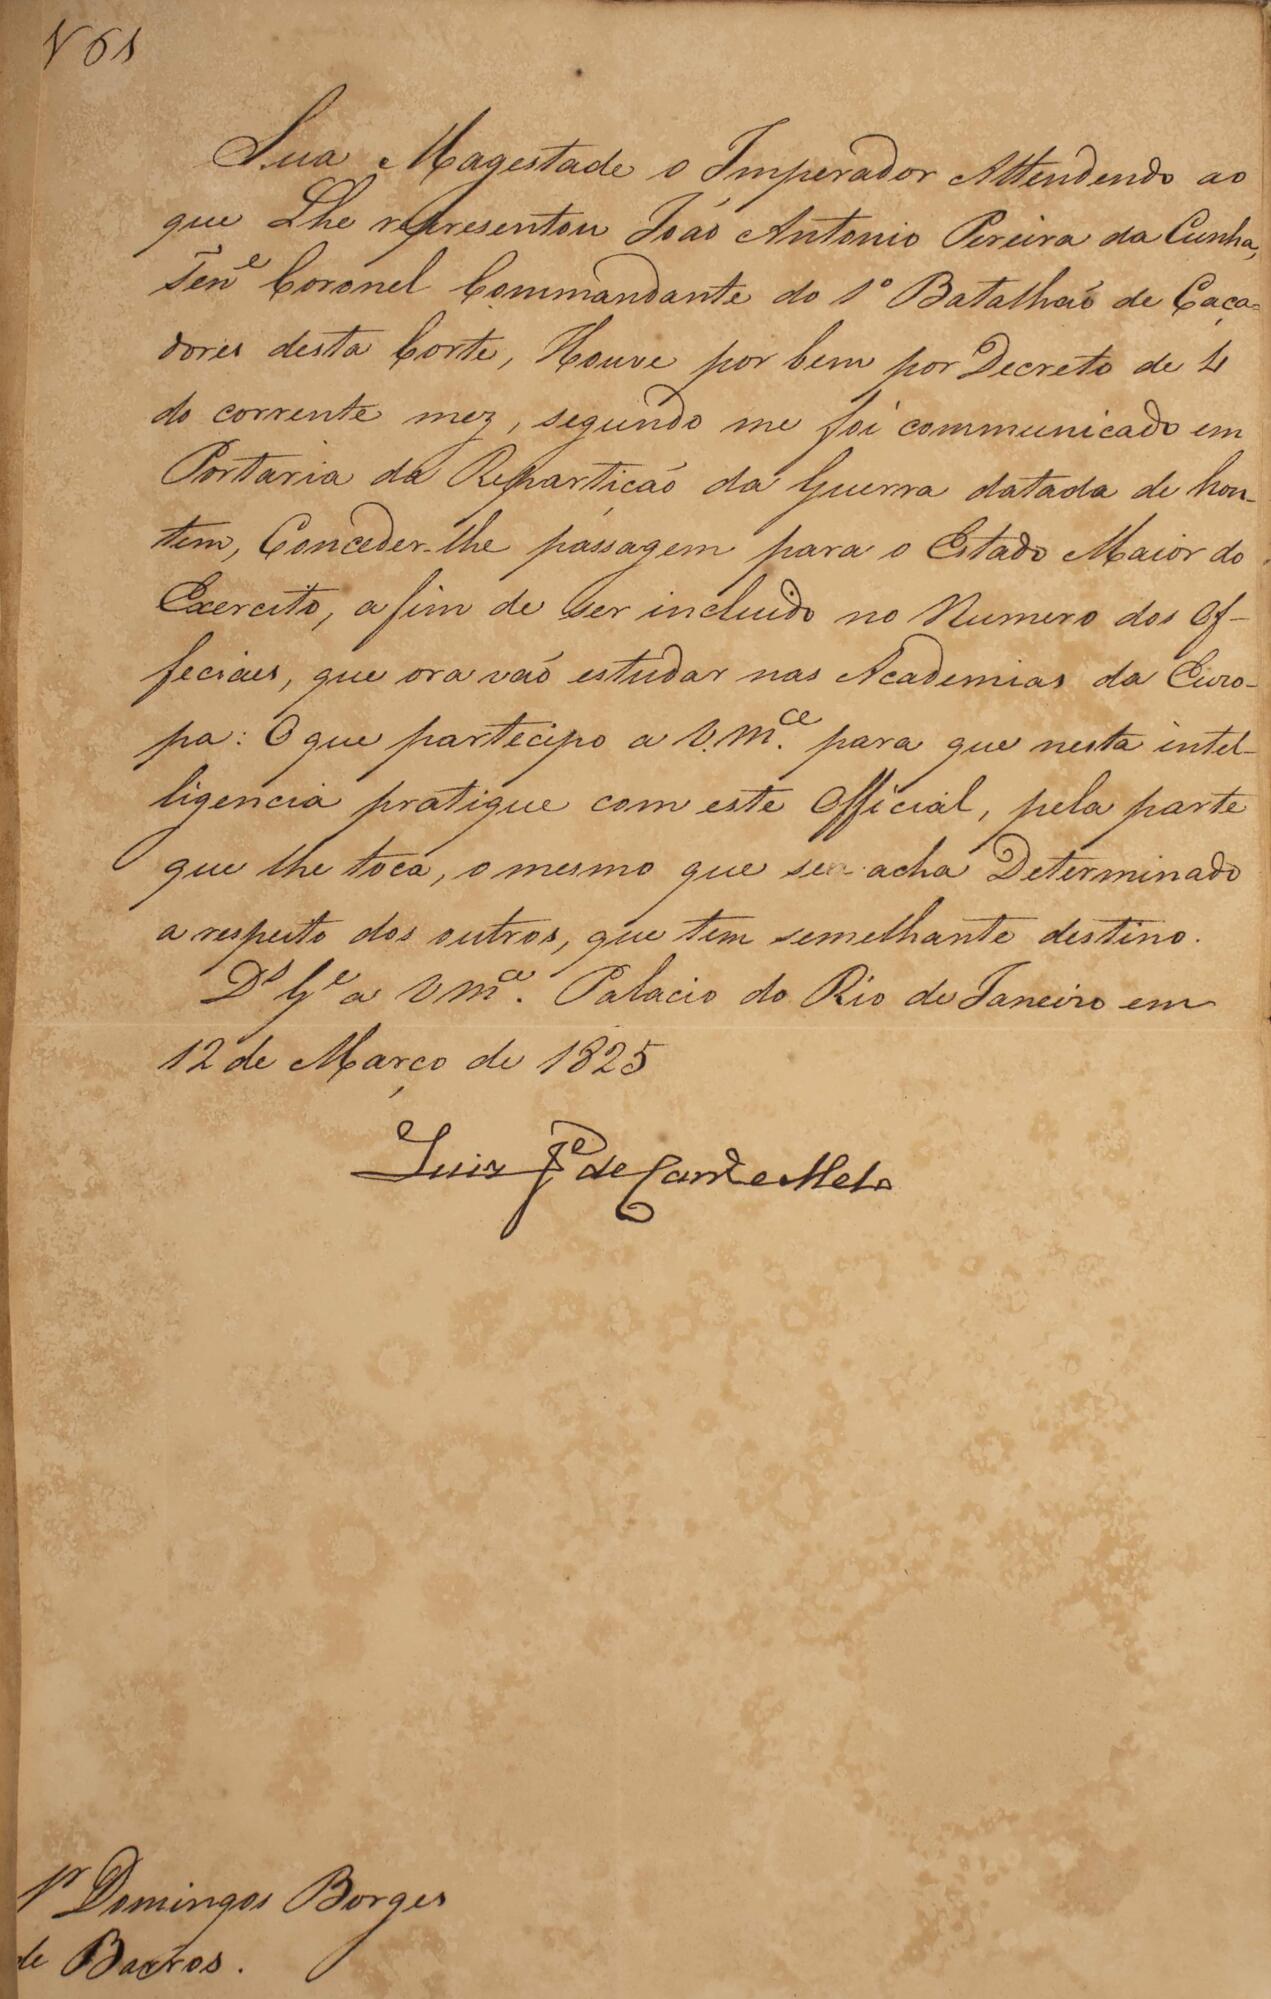 N 61
Sua Magestade o Imperador Attendendo ao
que Lhe representou João Antonio Pereira da Cunha,
Tenᵉ Coronel Commandante do 1º Batalhão de Caça-
dores desta Corte, Houve por bem por Decreto de 4
do corrente mez, segundo me foi communicado em
Portaria da Repartição da Guerra datada de hon-
tem, Conceder-lhe passagem para o Estado Maior do
Exercito, a fim de ser incluido no Numero dos Of-
feciaes, que ora vão estudar nas Academias da Euro-
pa: O que partecipo a V.Mᶜᵉ. para que nesta intel-
ligencia pratique com este Official, pela parte
que lhe toca, o mesmo que se acha Determinado
a respeito dos outros, que tem semelhante destino.
Dˢ Gᵉ a V Mᶜᵉ. Palacio do Rio de Janeiro em
12 de Março de 1825
Luiz Jᵉ de Carvº e Melo
Sʳ Domingos Borges
de Barros.